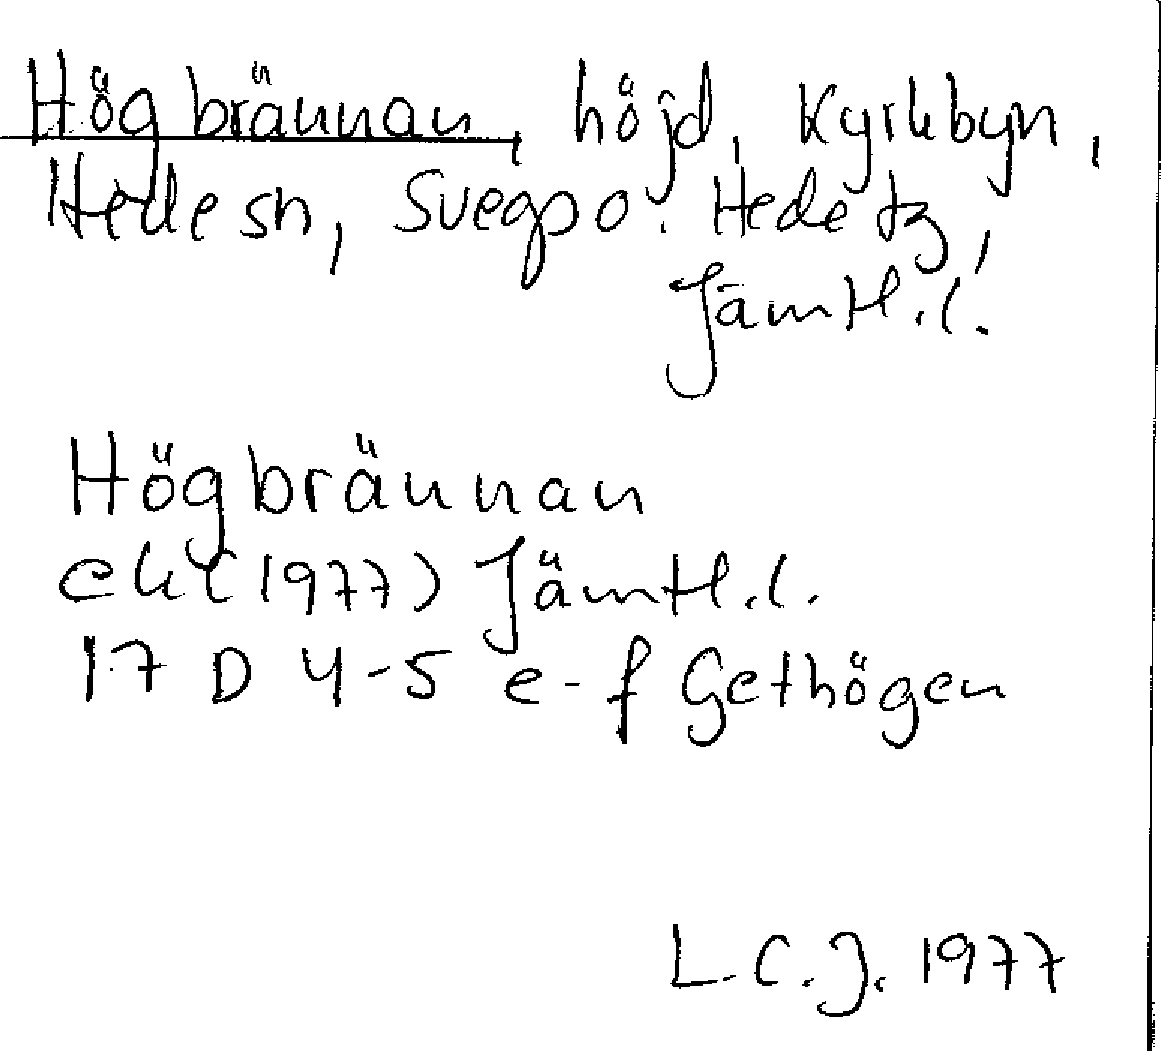 Högbrännan, höjd, Kyrkbyn,
Hede sn, Svegs po. Hede tg,
Jämtl. l.
Högbrännan
ek (1977) Jämtl. l.
17 D 4-5 e-f Gethögen
L.C.J. 1977